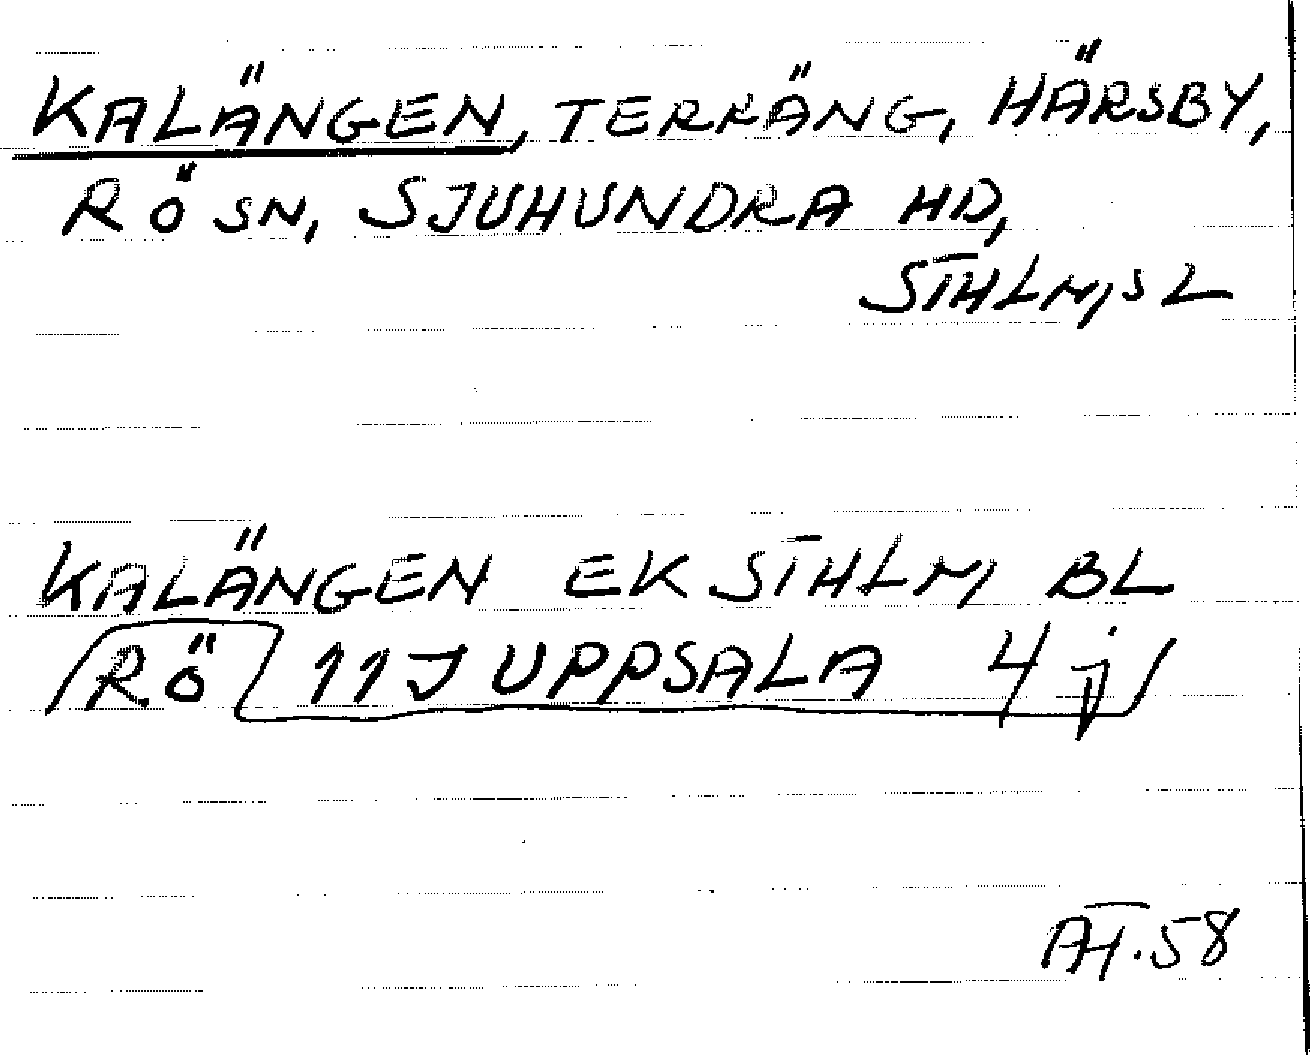 KALÄNGEN, TERRÄNG, HÄRSBY,
RÖ SN, SJUHUNDRA HD,
STHLM, S L
KALÄNGEN EK STHLM, BL
RÖ 11J UPPSALA 4 j
AH.58